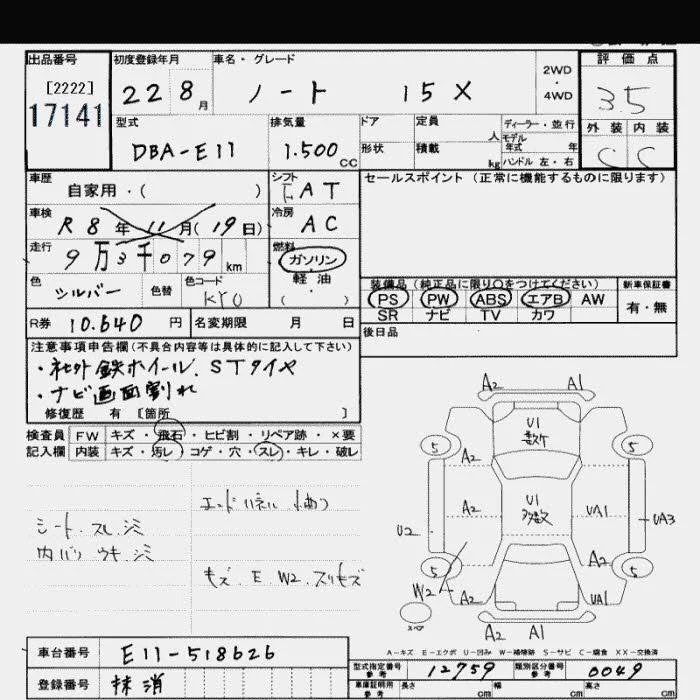 出品番号 初度登録年月 車名・グレード 2WD・4WD 評価点
[2222]
17141
22 8月 ノート 15X 35
外装 内装
C C
型式 排気量 ドア 定員 ディーラー・並行
DBA-E11 1.500cc 形状 積載 人 kg モデル年式 年
ハンドル 左・右
車歴 自家用・( )
シフト FAT
セールスポイント(正常に機能するものに限ります)
車検 R8年11月(19日)
冷房 AC
走行 9万3千079km
燃料 ガソリン・軽油
( )
色 シルバー 色替 色コード KY0
装備品(純正品に限り○をつけてください) 新車保証書
PS PW ABS エアB AW 有・無
SR ナビ TV カワ
R券 10.640円 名変期限 月 日
後日品
注意事項申告欄(不具合内容等は具体的に記入して下さい)
・社外鉄ホイール、STタイヤ
・ナビ画面割れ
修復歴 有 [箇所 ]
検査員 FW キズ・飛石・ヒビ割・リペア跡・×要
記入欄 内装 キズ・汚レ・コゲ・穴・スレ・キレ・破レ
シート・スレ、シミ
内バリ ウキ・シミ
キズ・E・W2・スリキズ
A2 A1
U1
5 5
A2
A2 U1 多数 UA1
U2 UA3
A2
5 5
W2 A2 UA1
スペア
A2 A1
A-キズ E-エクボ U-凹み W-補修跡 S-サビ C-腐食 XX-交換済
車台番号 E11-518626
型式指定番号 参考 12759 類別区分番号 参考 0049
登録番号 抹消
車庫証明用 参考 長さ cm 幅 cm 高さ cm